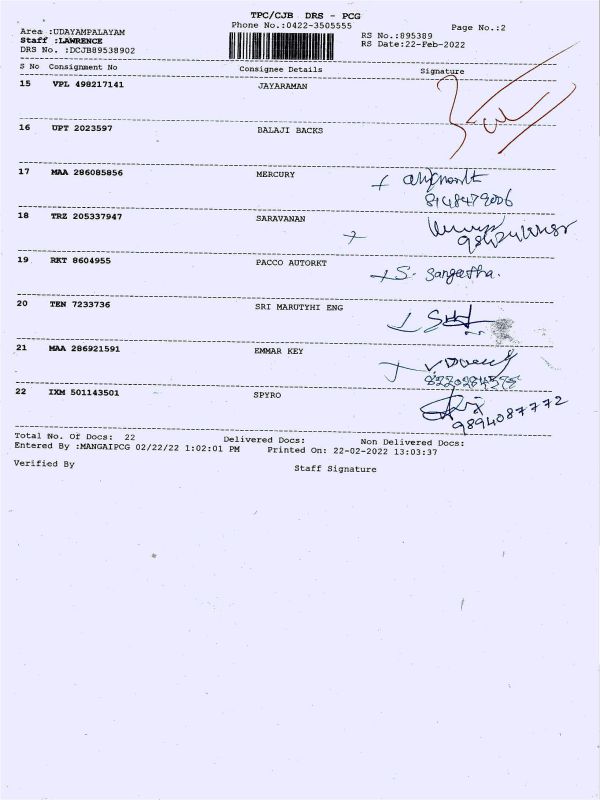 TPC/CJB DRS - PCG
Phone No.:0422-3505555
Page No.:2
Area :UDAYAMPALAYAM
Staff :LAWRENCE
DRS No. :DCJB89538902
RS No.:895389
RS Date:22-Feb-2022
S No Consignment No Consignee Details Signature
15 VPL 498217141 JAYARAMAN
16 UPT 2023597 BALAJI BACKS
17 MAA 286085856 MERCURY
18 TRZ 205337947 SARAVANAN
19 RKT 8604955 PACCO AUTORKT
S. Sangeetha.
20 TEN 7233736 SRI MARUTYHI ENG
21 MAA 286921591 EMMAR KEY
22 IXM 501143501 SPYRO
9894087772
Total No. Of Docs: 22 Delivered Docs: Non Delivered Docs:
Entered By :MANGAIPCG 02/22/22 1:02:01 PM Printed On: 22-02-2022 13:03:37
Verified By Staff Signature